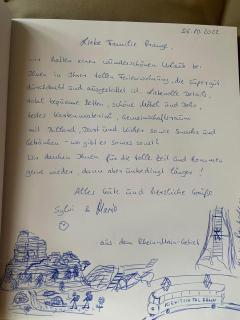 26.10.2022
Liebe Familie Prange,
wir hatten einen wunderschönen Urlaub bei
Ihnen in Ihrer tollen Ferienwohnung, die super gut
durchdacht und ausgestattet ist. Liebevolle Details,
total bequeme Betten, schöne Möbel und Deko,
tolles Kartenmaterial, Gemeinschaftsraum
mit Billard, Dart und Kicker sowie Snacks und
Getränken - wo gibt es sowas sonst?
Wir danken Ihnen für die tolle Zeit und kommen
gerne wieder, dann aber unbedingt länger!
Alles Gute und herzliche Grüße
Sylvi & Mario
aus dem Rhein-Main-Gebiet
KIRNITZSCHTALBAHN